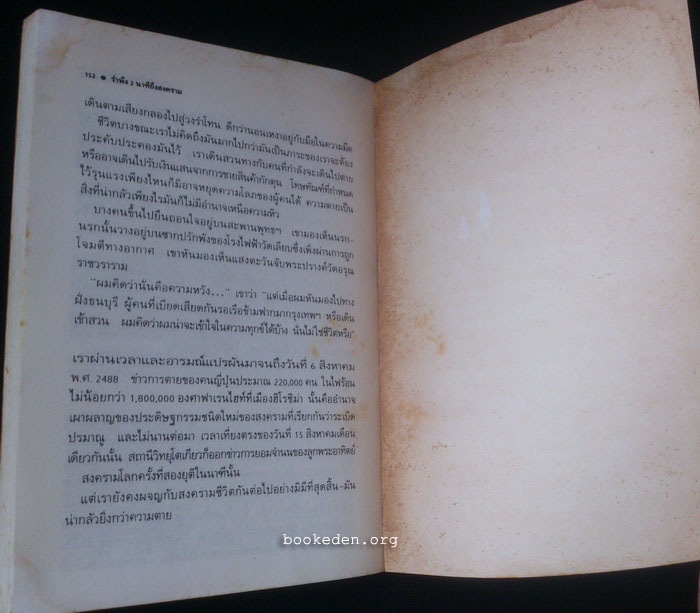 152 ● รำพึง 2 นาทีถึงสงคราม
เดินตามเสียงกลองไปสู่วงรำโทน ดีกว่านอนเหงาอยู่กับมือในความมืด
ชีวิตบางขณะเราไม่คิดถึงมันมากไปกว่ามันเป็นภาระของเราจะต้อง
ประคับประคองมันไว้ เราเดินสวนทางกับคนที่กำลังจะเดินไปตาย
หรืออาจเดินไปรับเงินแสนจากการขายสินค้ากักตุน โทษทัณฑ์ที่กำหนด
ไว้รุนแรงเพียงไหนก็มิอาจหยุดความโลภของผู้คนได้ ความตายเป็น
สิ่งที่น่ากลัวเพียงไรมันก็ไม่มีอำนาจเหนือความหิว
บางคนขึ้นไปยืนถอนใจอยู่บนสะพานพุทธฯ เขามองเห็นนรก-
นรกนั้นวางอยู่บนซากปรักพังของโรงไฟฟ้าวัดเลียบซึ่งเพิ่งผ่านการถูก
โจมตีทางอากาศ เขาหันมองเห็นแสงตะวันจับพระปรางค์วัดอรุณ
ราชวราราม
“ผมคิดว่านั่นคือความหวัง...” เขาว่า “แต่เมื่อผมหันมองไปทาง
ฝั่งธนบุรี ผู้คนที่เบียดเสียดกันรอเรือข้ามฟากมากรุงเทพฯ หรือเดิน
เข้าสวน ผมคิดว่าผมน่าจะเข้าใจในความทุกข์ได้บ้าง นั่นไม่ใช่ชีวิตหรือ”
เราผ่านเวลาและอารมณ์แปรผันมาจนถึงวันที่ 6 สิงหาคม
พ.ศ. 2488 ข่าวการตายของคนญี่ปุ่นประมาณ 220,000 คน ในไฟร้อน
ไม่น้อยกว่า 1,800,000 องศาฟาเรนไฮท์ที่เมืองฮิโรชิม่า นั้นคืออำนาจ
เผาผลาญของประดิษฐกรรมชนิดใหม่ของสงครามที่เรียกกันว่าระเบิด
ปรมาณู และไม่นานต่อมา เวลาเที่ยงตรงของวันที่ 15 สิงหาคมเดือน
เดียวกันนั้น สถานีวิทยุโตเกียวก็ออกข่าวการยอมจำนนของลูกพระอาทิตย์
สงครามโลกครั้งที่สองยุติในนาทีนั้น
แต่เรายังคงผจญกับสงครามชีวิตกันต่อไปอย่างมิมีที่สุดสิ้น-มัน
น่ากลัวยิ่งกว่าความตาย
bookeden.org